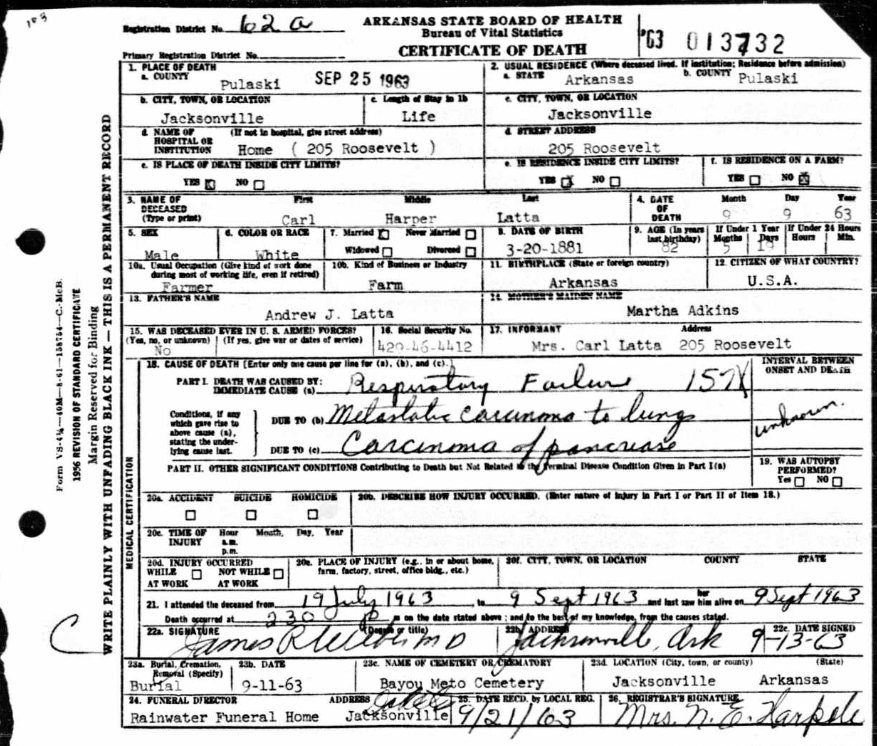 183
Registration District No. 62 a
ARKANSAS STATE BOARD OF HEALTH
Bureau of Vital Statistics
CERTIFICATE OF DEATH
'63 013732
Primary Registration District No.
1. PLACE OF DEATH
a. COUNTY Pulaski SEP 25 1963
2. USUAL RESIDENCE (Where deceased lived. If institution; Residence before admission)
a. STATE Arkansas b. COUNTY Pulaski
b. CITY, TOWN, OR LOCATION Jacksonville
c. Length of Stay in 1b Life
c. CITY, TOWN, OR LOCATION Jacksonville
d. NAME OF HOSPITAL OR INSTITUTION (If not in hospital, give street address)
Home ( 205 Roosevelt )
d. STREET ADDRESS
205 Roosevelt
e. IS PLACE OF DEATH INSIDE CITY LIMITS?
YES ☒ NO ☐
e. IS RESIDENCE INSIDE CITY LIMITS?
YES ☒ NO ☐
f. IS RESIDENCE ON A FARM?
YES ☐ NO ☒
3. NAME OF DECEASED (Type or print)
First Middle Last
Carl Harper Latta
4. DATE OF DEATH
Month Day Year
9 9 63
5. SEX Male
6. COLOR OR RACE White
7. Married ☒ Never Married ☐
Widowed ☐ Divorced ☐
8. DATE OF BIRTH 3-20-1881
9. AGE (In years last birthday) 82
If Under 1 Year If Under 24 Hours
Months Days Hours Min.
5 19
10a. Usual Occupation (Give kind of work done during most of working life, even if retired)
Farmer
10b. Kind of Business or Industry
Farm
11. BIRTHPLACE (State or foreign country)
Arkansas
12. CITIZEN OF WHAT COUNTRY?
U.S.A.
13. FATHER'S NAME
Andrew J. Latta
14. MOTHER'S MAIDEN NAME
Martha Adkins
15. WAS DECEASED EVER IN U. S. ARMED FORCES?
(Yes, no, or unknown) (If yes, give war or dates of service)
No
16. Social Security No.
429-46-4412
17. INFORMANT Address
Mrs. Carl Latta 205 Roosevelt
18. CAUSE OF DEATH [Enter only one cause per line for (a), (b), and (c).]
INTERVAL BETWEEN ONSET AND DEATH
PART I. DEATH WAS CAUSED BY:
IMMEDIATE CAUSE (a) Respiratory Failure 157X
Conditions, if any which gave rise to above cause (a), stating the underlying cause last.
DUE TO (b) Metastatic carcinoma to lungs
unknown.
DUE TO (c) Carcinoma of pancrease
PART II. OTHER SIGNIFICANT CONDITIONS Contributing to Death but Not Related to the Terminal Disease Condition Given in Part I(a)
19. WAS AUTOPSY PERFORMED?
Yes ☐ NO ☐
20a. ACCIDENT SUICIDE HOMICIDE
☐ ☐ ☐
20b. DESCRIBE HOW INJURY OCCURRED. (Enter nature of Injury in Part I or Part II of Item 18.)
20c. TIME OF INJURY
Hour Month, Day, Year
a.m.
p.m.
20d. INJURY OCCURRED
WHILE ☐ NOT WHILE ☐
AT WORK AT WORK
20e. PLACE OF INJURY (e.g., in or about home, farm, factory, street, office bldg., etc.)
20f. CITY, TOWN, OR LOCATION COUNTY STATE
21. I attended the deceased from 19 July 1963, to 9 Sept 1963 and last saw her him alive on 9 Sept 1963
Death occurred at 230 P m on the date stated above; and to the best of my knowledge, from the causes stated.
22a. SIGNATURE (Degree or title)
James R MD
22b. ADDRESS
Jacksonville, Ark
22c. DATE SIGNED
9-13-63
23a. Burial, Cremation, Removal (Specify)
Burial
23b. DATE
9-11-63
23c. NAME OF CEMETERY OR CREMATORY
Bayou Meto Cemetery
23d. LOCATION (City, town, or county) (State)
Jacksonville Arkansas
24. FUNERAL DIRECTOR ADDRESS
Rainwater Funeral Home Jacksonville
25. DATE RECD. by LOCAL REG.
9/21/63
26. REGISTRAR'S SIGNATURE
Mrs. N. E. Harpole
MEDICAL CERTIFICATION
WRITE PLAINLY WITH UNFADING BLACK INK — THIS IS A PERMANENT RECORD
Margin Reserved for Binding
1956 REVISION OF STANDARD CERTIFICATE
C